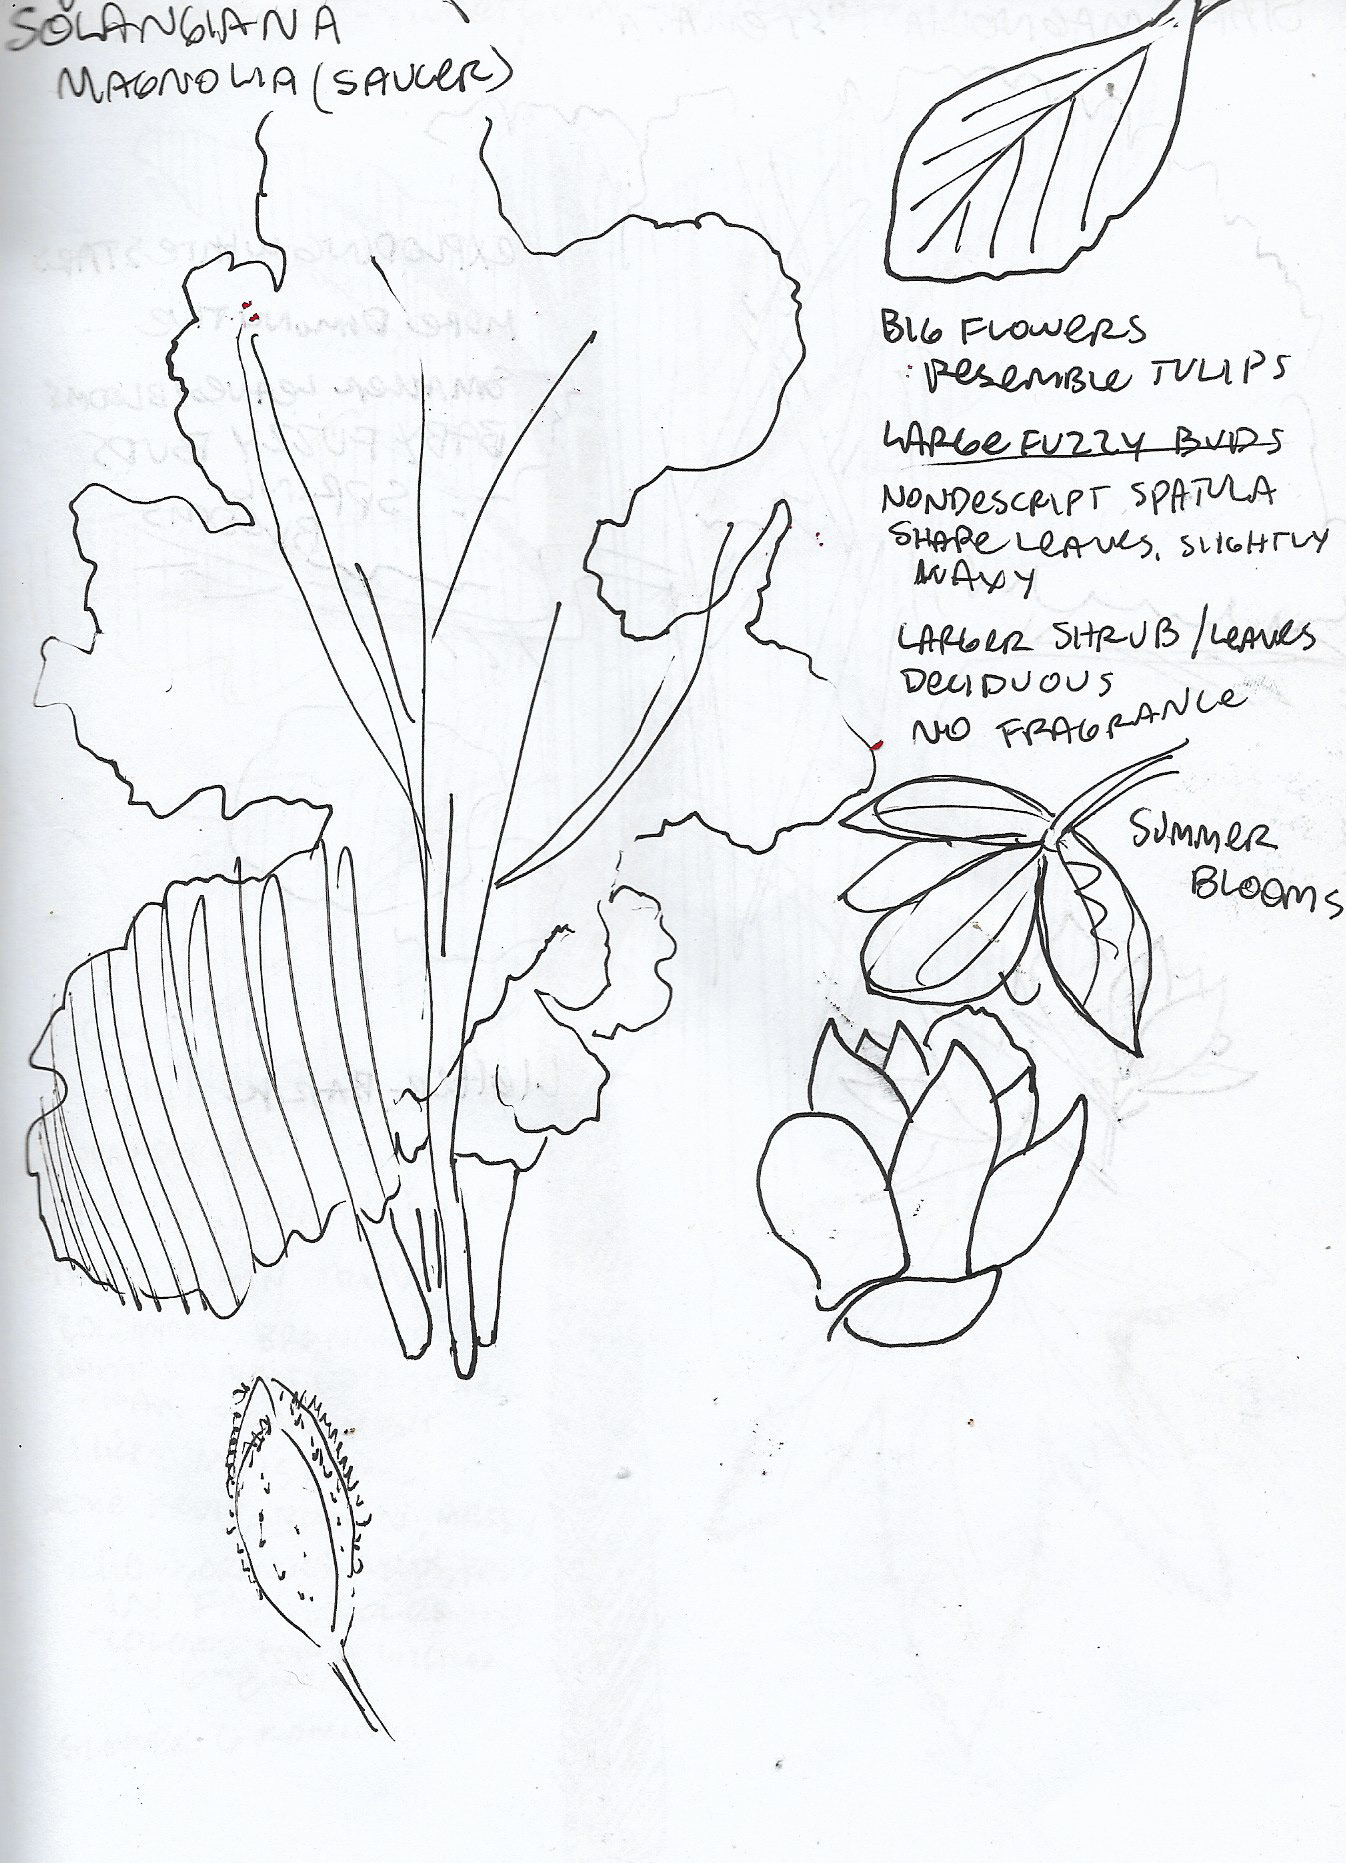 SOLANGIANA
MAGNOLIA (SAUCER)
BIG FLOWERS
RESEMBLE TULIPS
LARGE FUZZY BUDS
NONDESCRIPT SPATULA
SHAPE LEAVES, SLIGHTLY
WAXY
LARGER SHRUB / LEAVES
DECIDUOUS
NO FRAGRANCE
SUMMER
BLOOMS